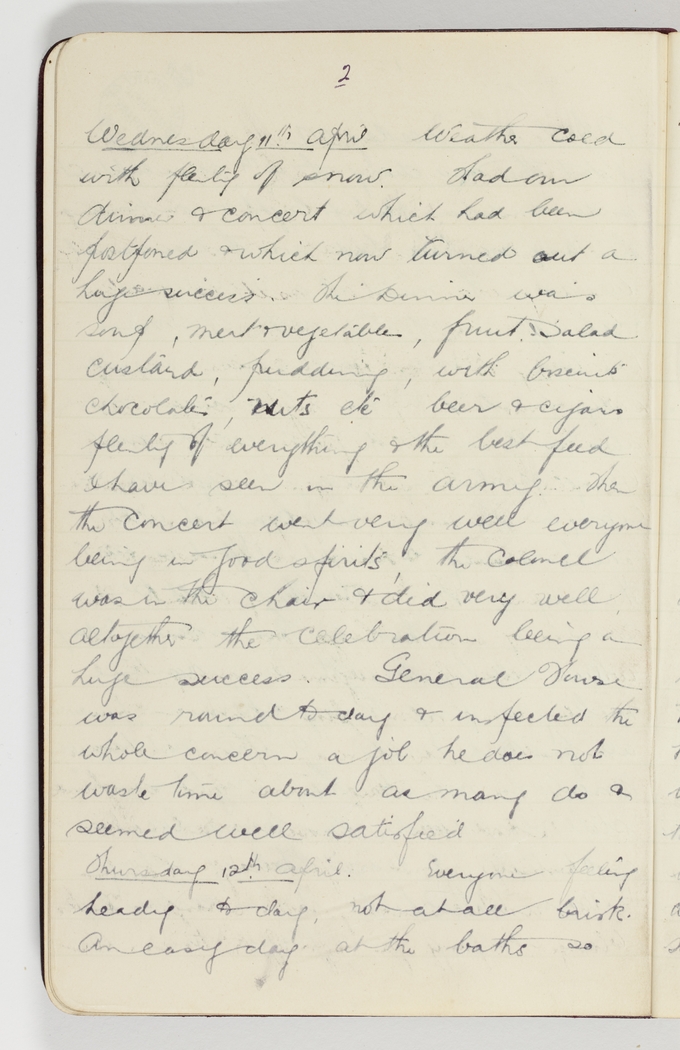 2
Wednesday 11th April Weather cold
with plenty of snow. Had our
dinner & concert which had been
postponed & which now turned out a
huge success. The dinner was
soup, meat & vegetables, fruit salad
custard, pudding, with biscuits
chocolates, nuts etc beer & cigars
plenty of everything & the best feed
I have seen in the army. Then
the concert went very well everyone
being in good spirits, the Colonel
was in the chair & did very well,
altogether the celebration being a
huge success. General
was round to day & inspected the
whole concern a job he does not
waste time about as many do &
seemed well satisfied
Thursday 12th April. Everyone feeling
heady to day, not at all brisk.
An easy day at the baths so